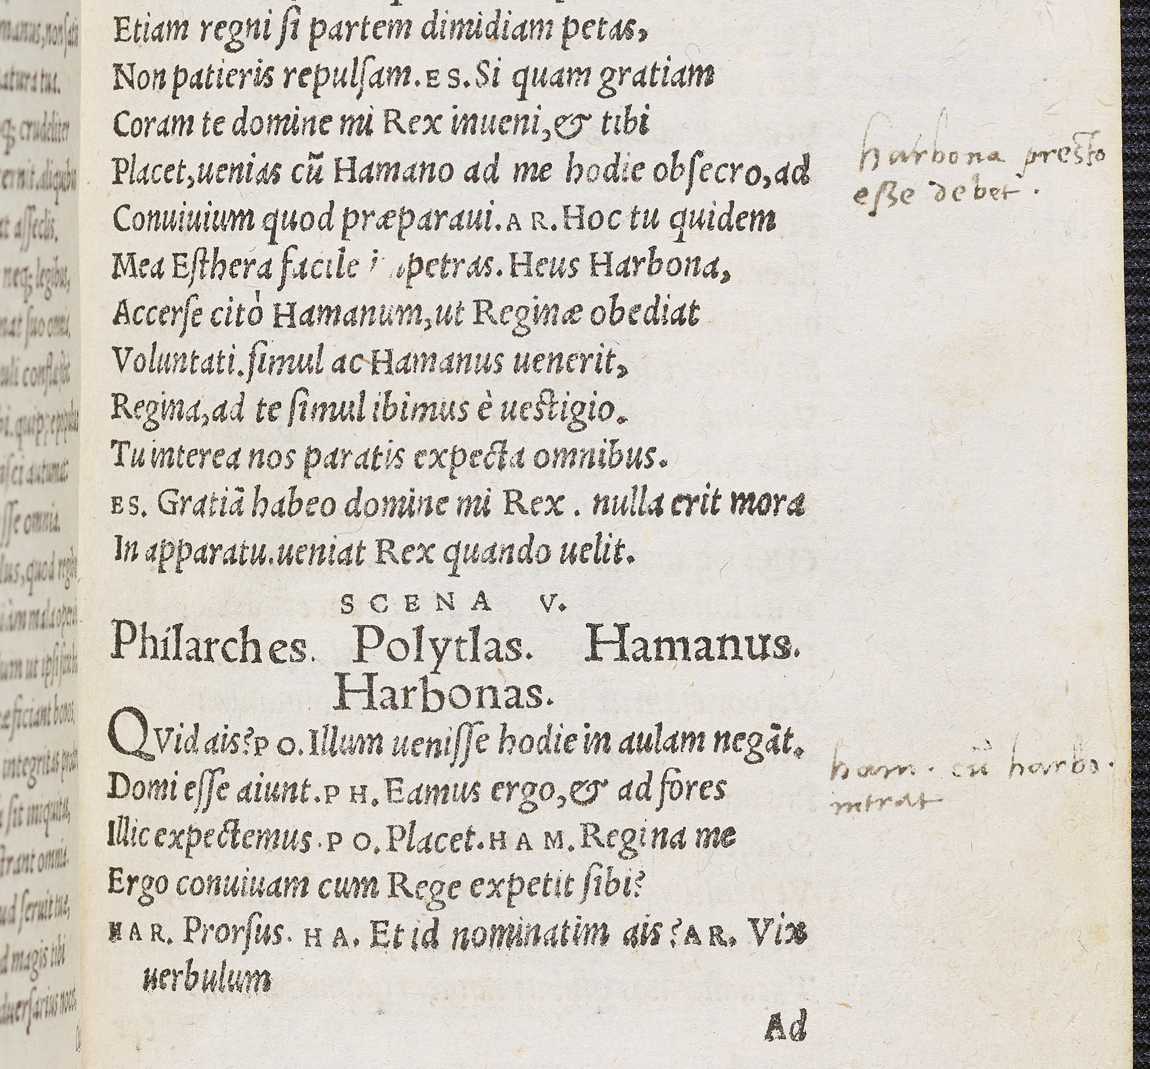 Etiam regni ſi partem dimidiam petas,
Non patieris repulſam. ES. Si quam gratiam
Coram te domine mi Rex inueni, & tibi
Placet, uenias cũ Hamano ad me hodie obſecro, ad
Conuiuium quod præparaui. AR. Hoc tu quidem
Mea Eſthera facile i petras. Heus Harbona,
Accerſe citò Hamanum, ut Reginæ obediat
Voluntati. ſimul ac Hamanus uenerit,
Regina, ad te ſimul ibimus è ueſtigio.
Tu interea nos paratis expecta omnibus.
ES. Gratiã habeo domine mi Rex. nulla erit mora
In apparatu. ueniat Rex quando uelit.
SCENA V.
Philarches. Polytlas. Hamanus.
Harbonas.
QVid ais? PO. Illum ueniſſe hodie in aulam negãt.
Domi eſſe aiunt. PH. Eamus ergo, & ad fores
Illic expectemus. PO. Placet. HAM. Regina me
Ergo conuiuam cum Rege expetit ſibi?
HAR. Prorſus. HA. Et id nominatim ais? AR. Vix
uerbulum
Ad
harbona presto
eſse debet.
ham. cũ harbo.
intrat